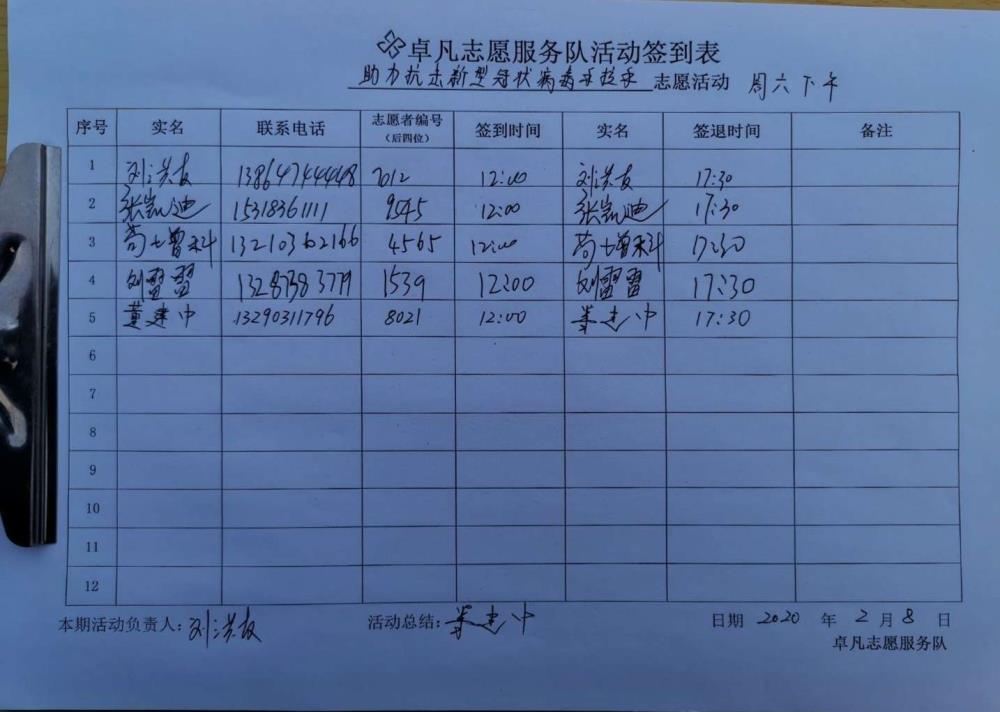 卓凡志愿服务队活动签到表
助力抗击新型冠状病毒 志愿活动 周六下午
序号 实名 联系电话 志愿者编号（后四位） 签到时间 实名 签退时间 备注
1 刘洪友 13864744448 7012 12:00 刘洪友 17:30
2 张凯迪 15318361111 9545 12:00 张凯迪 17:30
3 13210362166 4565 12:00 17:30
4 刘雷雷 13287383779 1539 12:00 刘雷雷 17:30
5 董建中 13290311796 8021 12:00 董建中 17:30
6
7
8
9
10
11
12
本期活动负责人：刘洪友 活动总结：董建中 日期 2020 年 2 月 8 日
卓凡志愿服务队